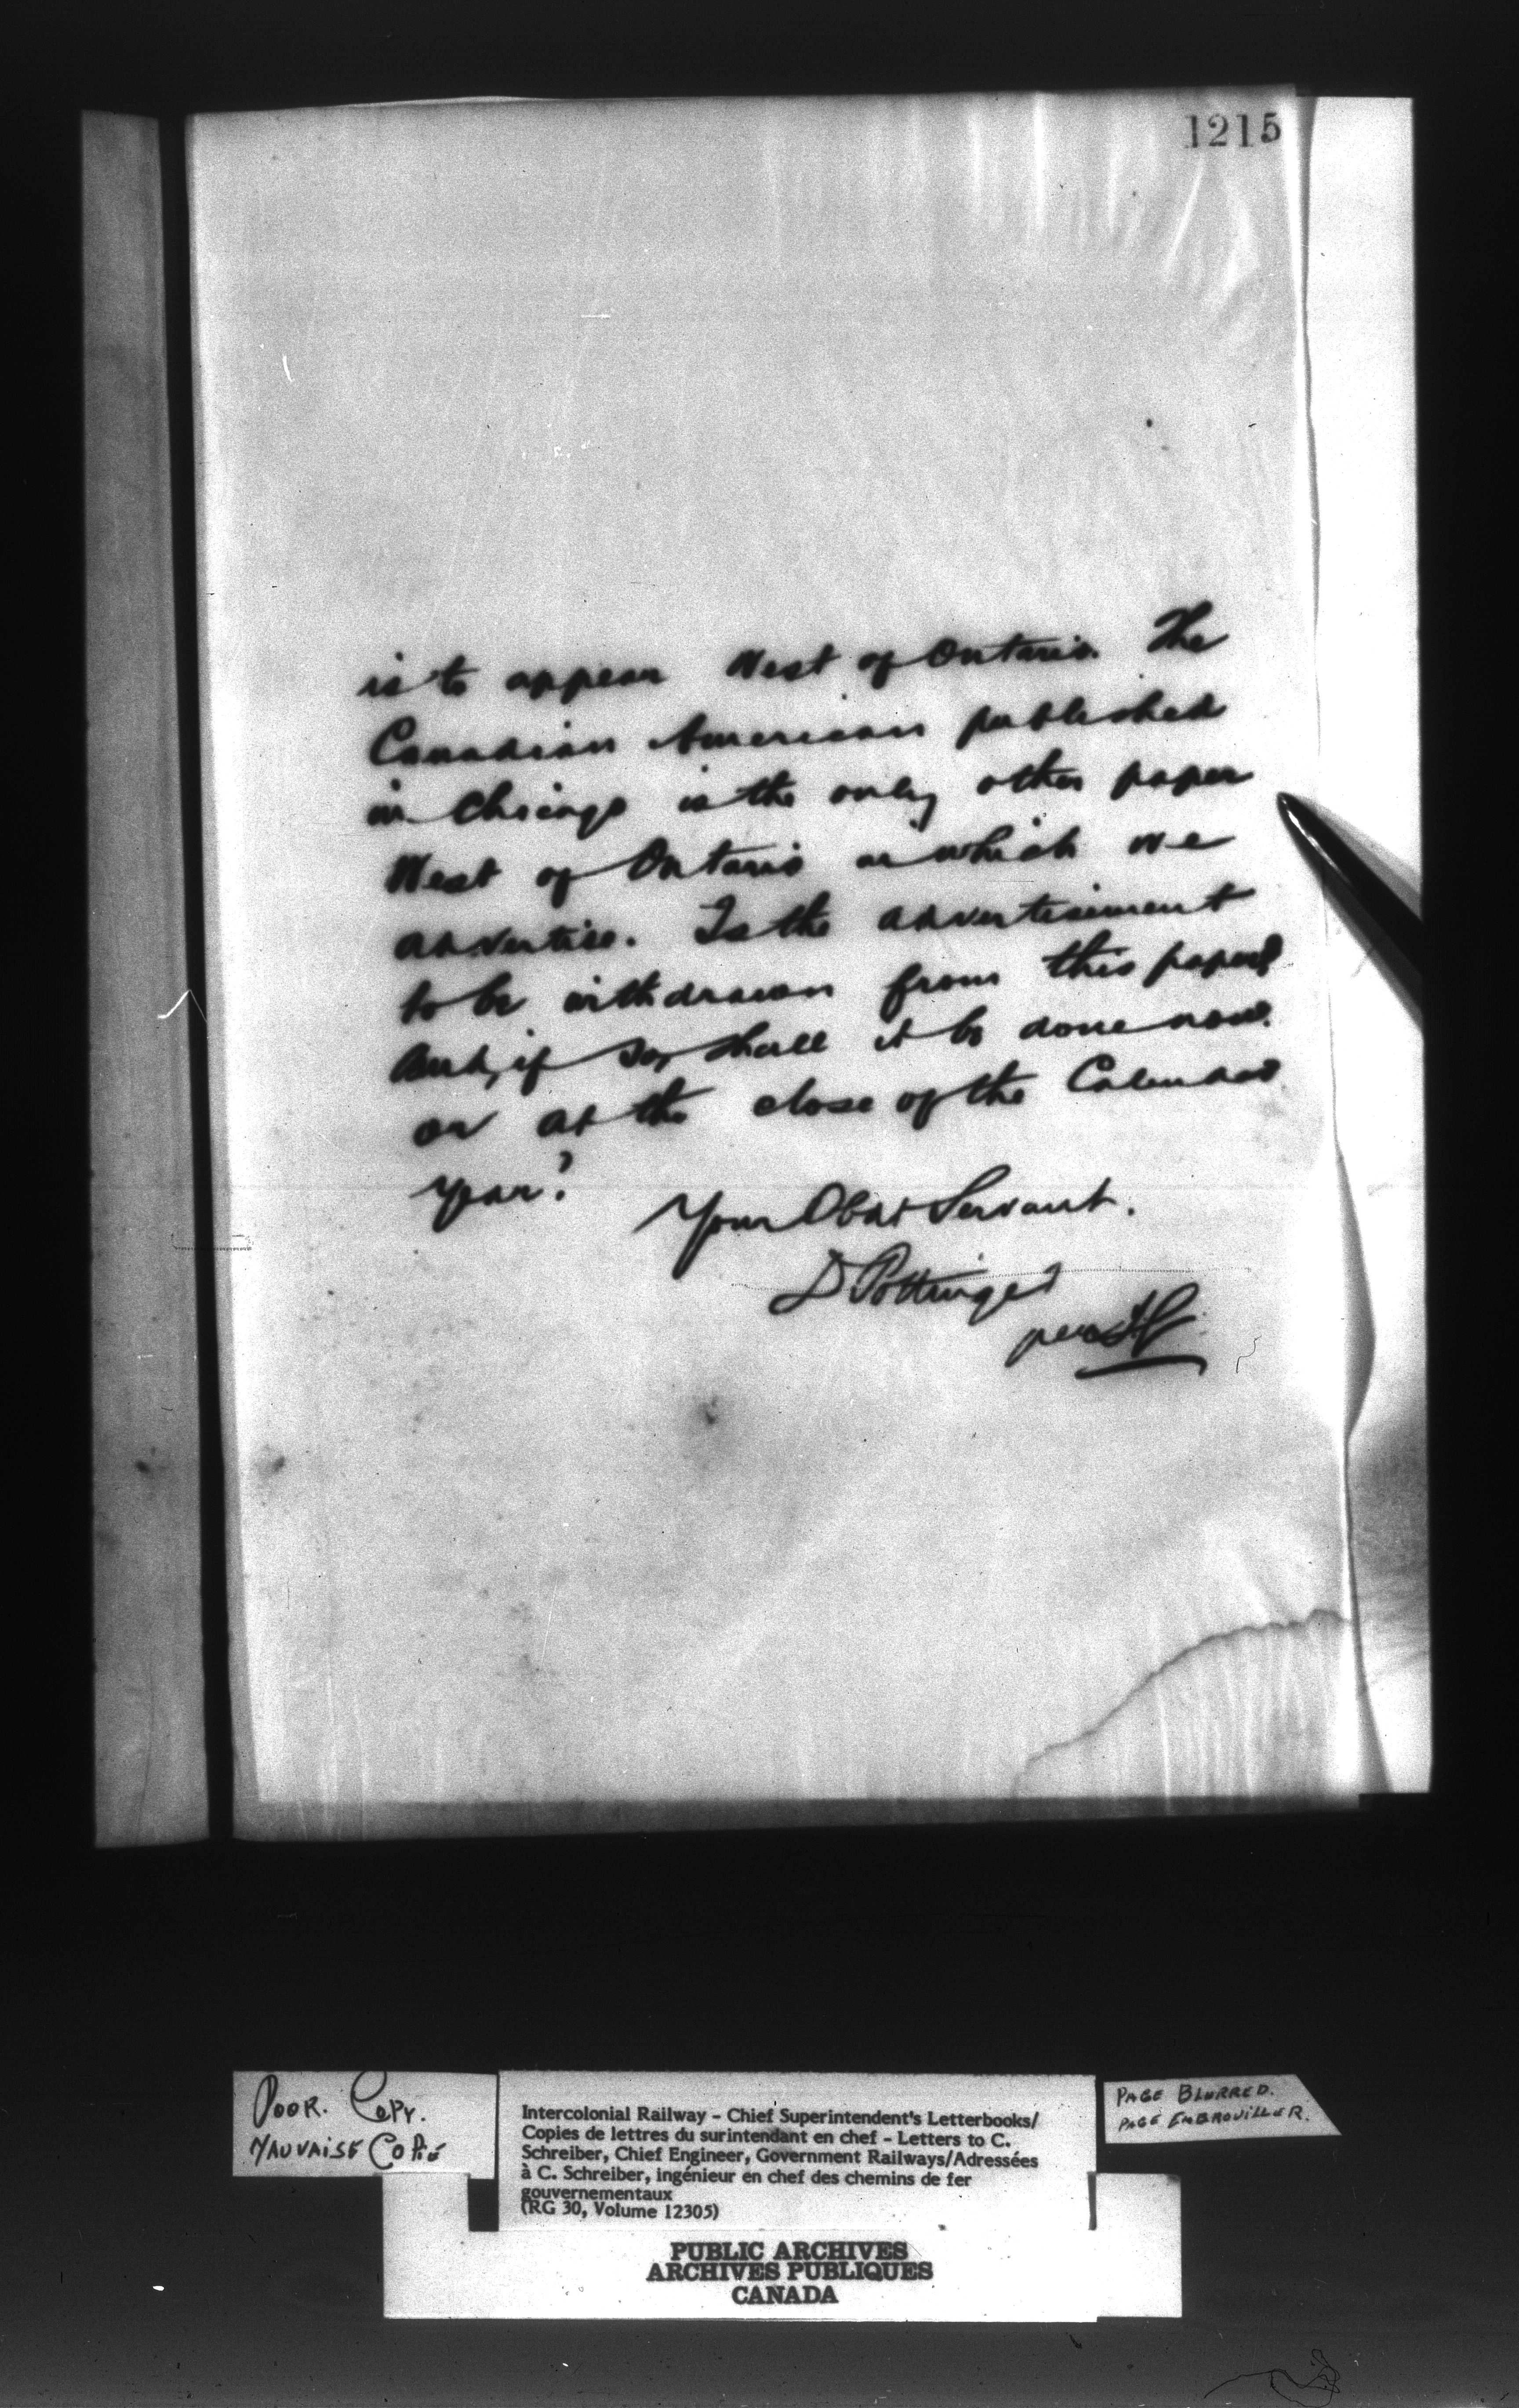 1215
is to appear West of Ontario. The
Canadian American published
in Chicago is the only other paper
West of Ontario in which we
advertise. Is the advertisement
to be withdrawn from this paper?
And, if so, shall it be done now
or at the close of the Calendar
year?
Your Obdt Servant.
D Pottinger
per
POOR. COPY.
MAUVAISE COPIE
Intercolonial Railway – Chief Superintendent's Letterbooks/
Copies de lettres du surintendant en chef – Letters to C.
Schreiber, Chief Engineer, Government Railways/Adressées
à C. Schreiber, ingénieur en chef des chemins de fer
gouvernementaux
(RG 30, Volume 12305)
PAGE BLURRED.
PAGE EMBROUILLER.
PUBLIC ARCHIVES
ARCHIVES PUBLIQUES
CANADA